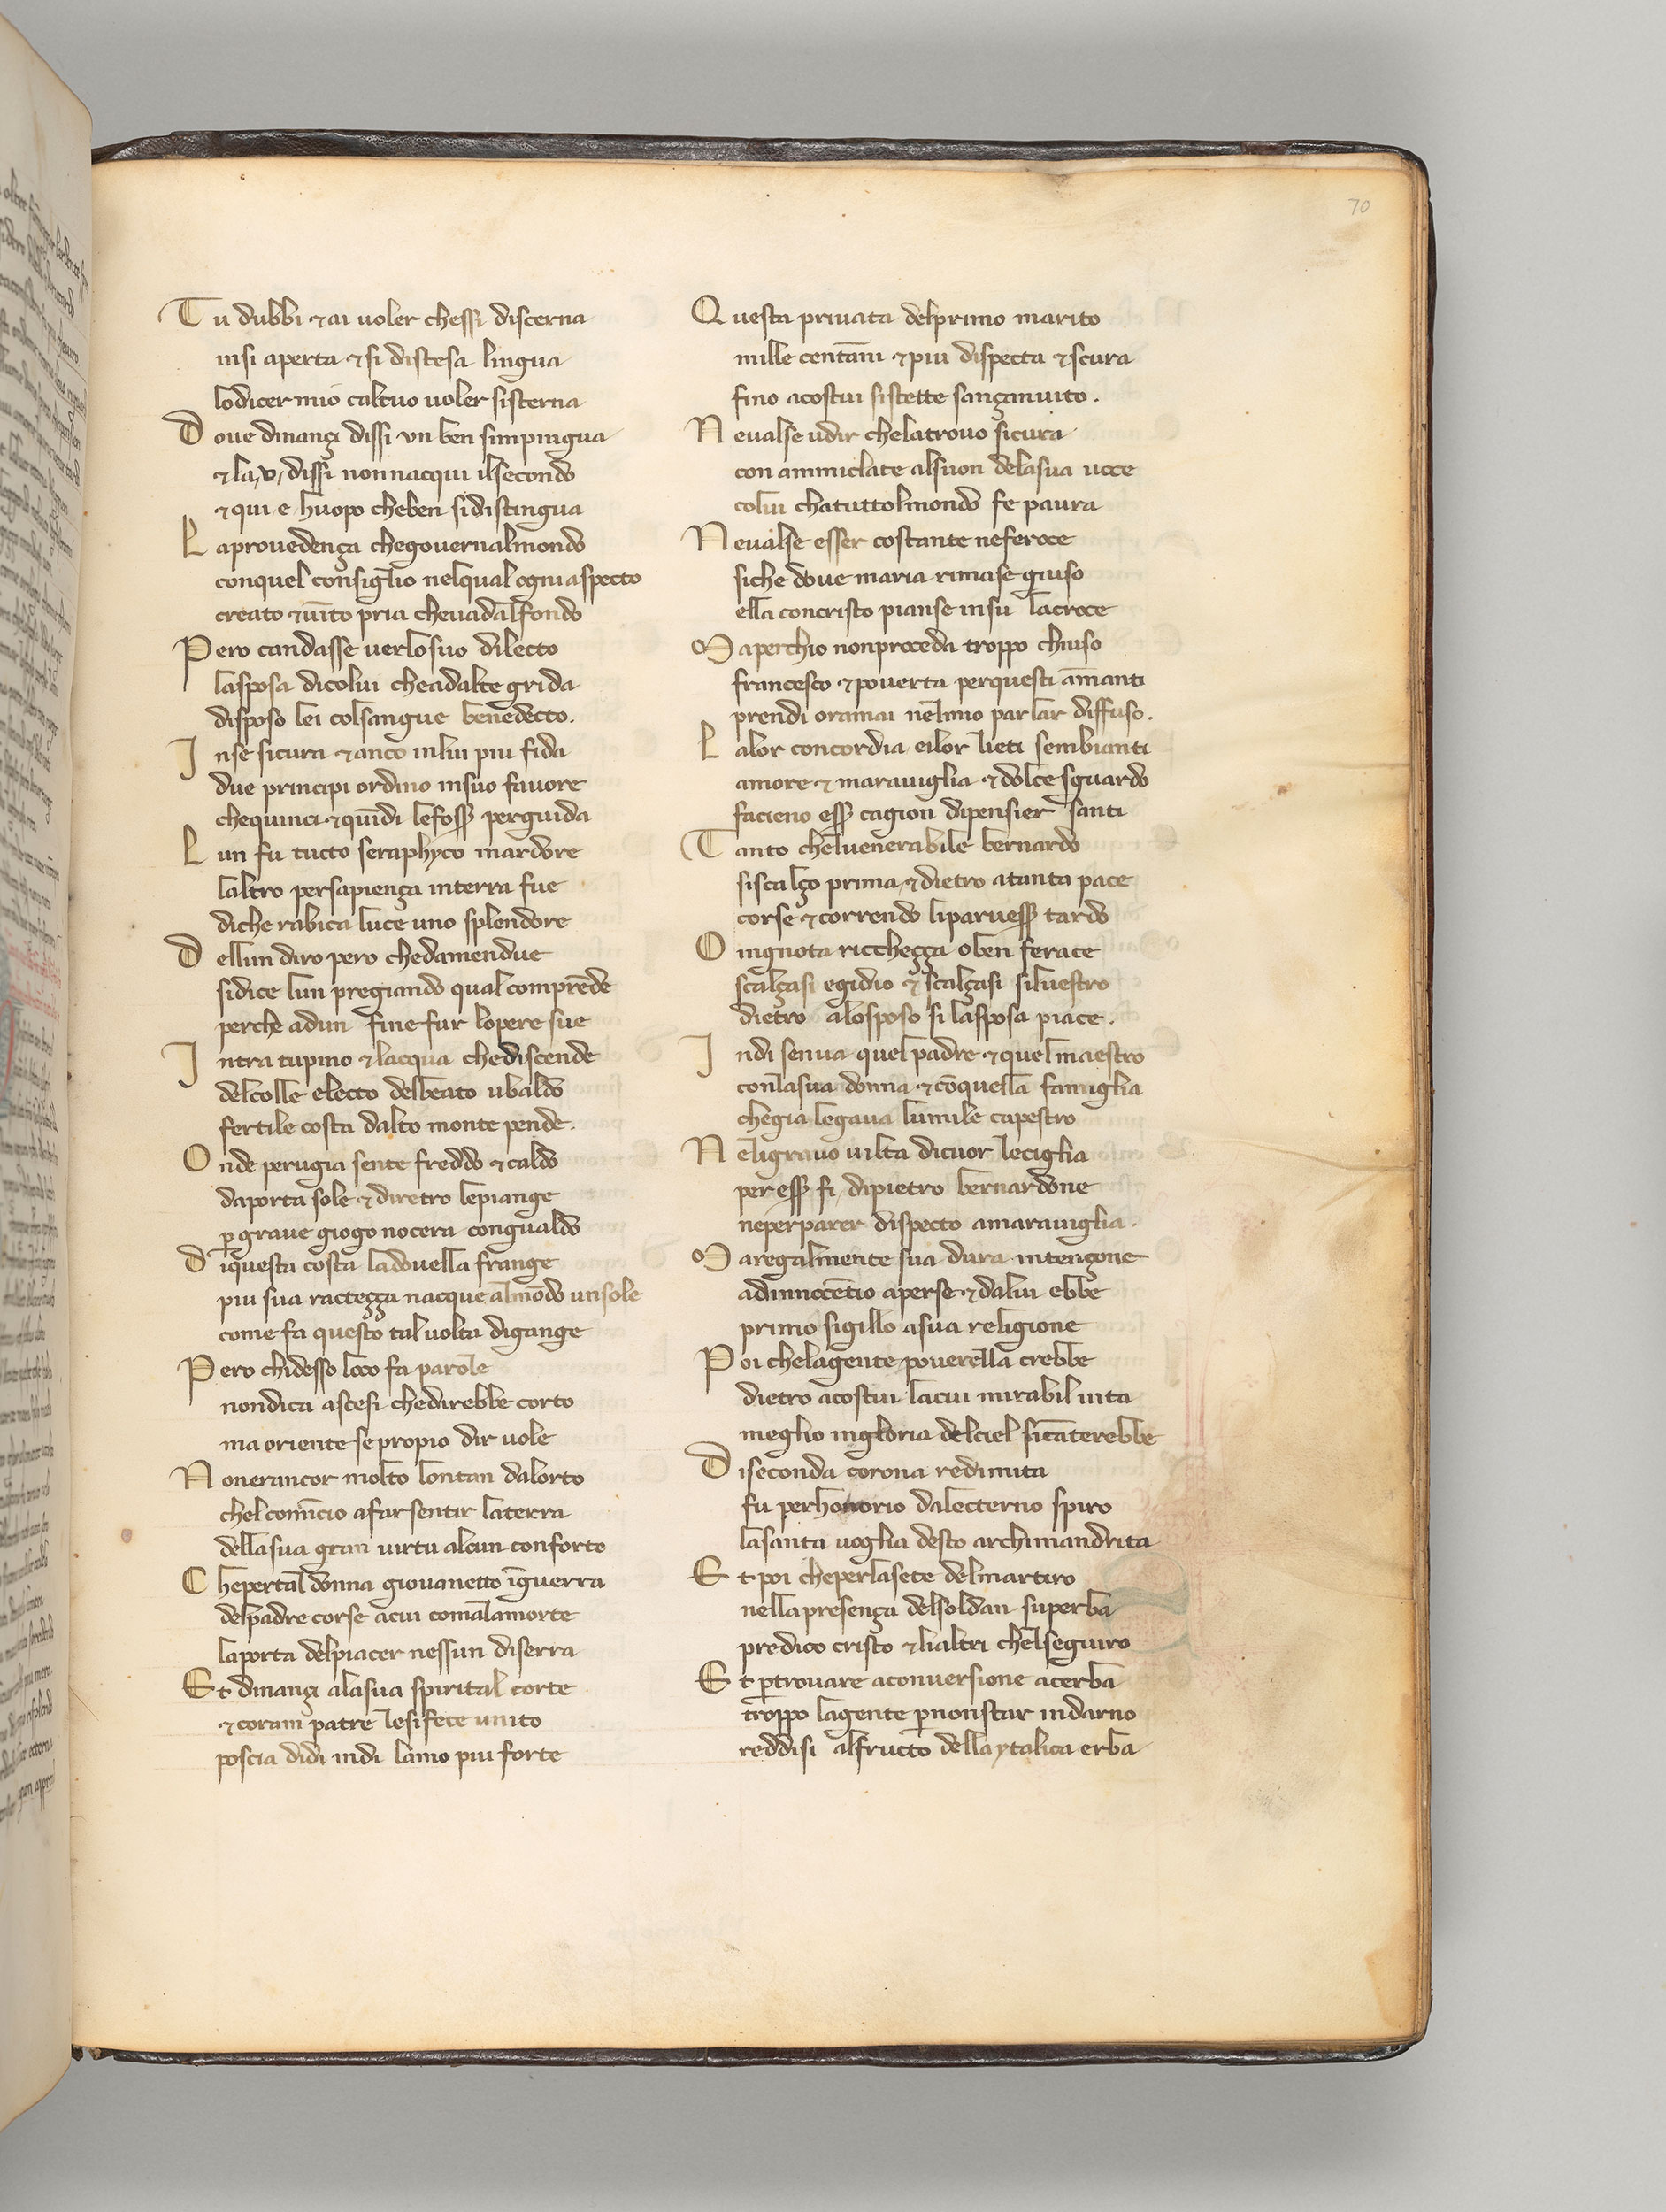 70
Tu dubbi ⁊ ai uoler chessi discerna
insi aperta ⁊ si distesa lingua
lodicer mio caltuo uoler sisterna
Doue dinançi dissi vn ben simpingua
⁊ la, v, dissi nonnacqui ilsecondo
⁊ qui e huopo cheben sidistingua
Laprouedença chegouernalmondo
conquel consiglio nelqual ogni aspecto
creato ⁊ uīto pria cheuadalfondo
Pero candasse uerlosuo dilecto
lasposa dicolui cheadalte grida
disposo lei colsangue benedecto.
Inse sicura ⁊ anco inlui piu fida
due principi ordino insuo fauore
chequinci ⁊ quīdi lefoss̄ perguida
Lun fu tucto seraphyco inardore
laltro persapiença interra fue
diche rabica luce uno splendore
Dellun diro pero chedamendue
sidice lun pregiando qual comprēde
perche adun fine fur lopere sue
Intra tupino ⁊ lacqua chediscende
delcolle electo delbeato ubaldo
fertile costa dalto monte pende.
Onde perugia sente freddo ⁊ caldo
daporta sole ⁊ diretro lepiange
ꝑ graue giogo nocera congualdo
Diq̄uesta costa ladouella frange
piu sua racteçça nacque almōdo unsole
come fa questo tal uolta digange
Pero chidesso loco fa parole
nondica ascesi chedirebbe corto
ma oriente sepropio dir uole
Nonerancor molto lontan dalorto
chel comīcio afar sentir laterra
dellasua gran uirtu alcun conforto
Chepertal donna giouanetto īguerra
delpadre corse acui comalamorte
laporta delpiacer nessun diserra
Et dinançi alasua spirital corte
⁊ coram patre lesifece unito
poscia didi indi lamo piu forte
Questa priuata delprimo marito
mille centāni ⁊ piu dispecta ⁊ scura
fino acostui sistette sançinuito.
Neualse udir chelatrouo sicura
con ammiclate alsuon delasua uoce
colui chatuttolmondo fe paura
Neualse esser costante neferoce
siche doue maria rimase giuso
ella concristo pianse insu lacroce
Maperchio nonproceda troppo chiuso
francesco ⁊ pouerta perquesti amanti
prendi oramai nelmio parlar diffuso.
Lalor concordia eilor lieti sembianti
amore ⁊ marauiglia ⁊ dolce sguardo
facieno ess̄ cagion dipensier santi
Tanto cheluenerabile bernardo
siscalço prima ⁊ dietro atanta pace
corse ⁊ correndo liparuess̄ tardo
O ingnota riccheçça oben ferace
scalçasi egidio ⁊ scalçasi siluestro
dietro alosposo si lasposa piace.
Indi senua quel padre ⁊ quel maestro
conlasua donna ⁊ cōquella famiglia
chegia legaua lumile capestro
Neligrauo uilta dicuor leciglia
per ess̄ fi, dipietro bernardone
neperparer dispecto amarauiglia.
Maregalmente sua dura intençone
adinnocētio aperse ⁊ dalui ebbe
primo sigillo asua religione
Poi chelagente pouerella crebbe
dietro acostui lacui mirabil uita
meglio ingloria delciel sicāterebbe
Diseconda corona redimita
fu perhonorio dalecterno spiro
lasanta uoglia desto archimandrita
Et poi cheperlasete delmartiro
nellapresença delsoldan superba
predico cristo ⁊ lialtri chelseguiro
Et ꝑtrouare aconuersione acerba
troppo lagente ꝑnonstar indarno
reddisi alfructo dellaytalica erba